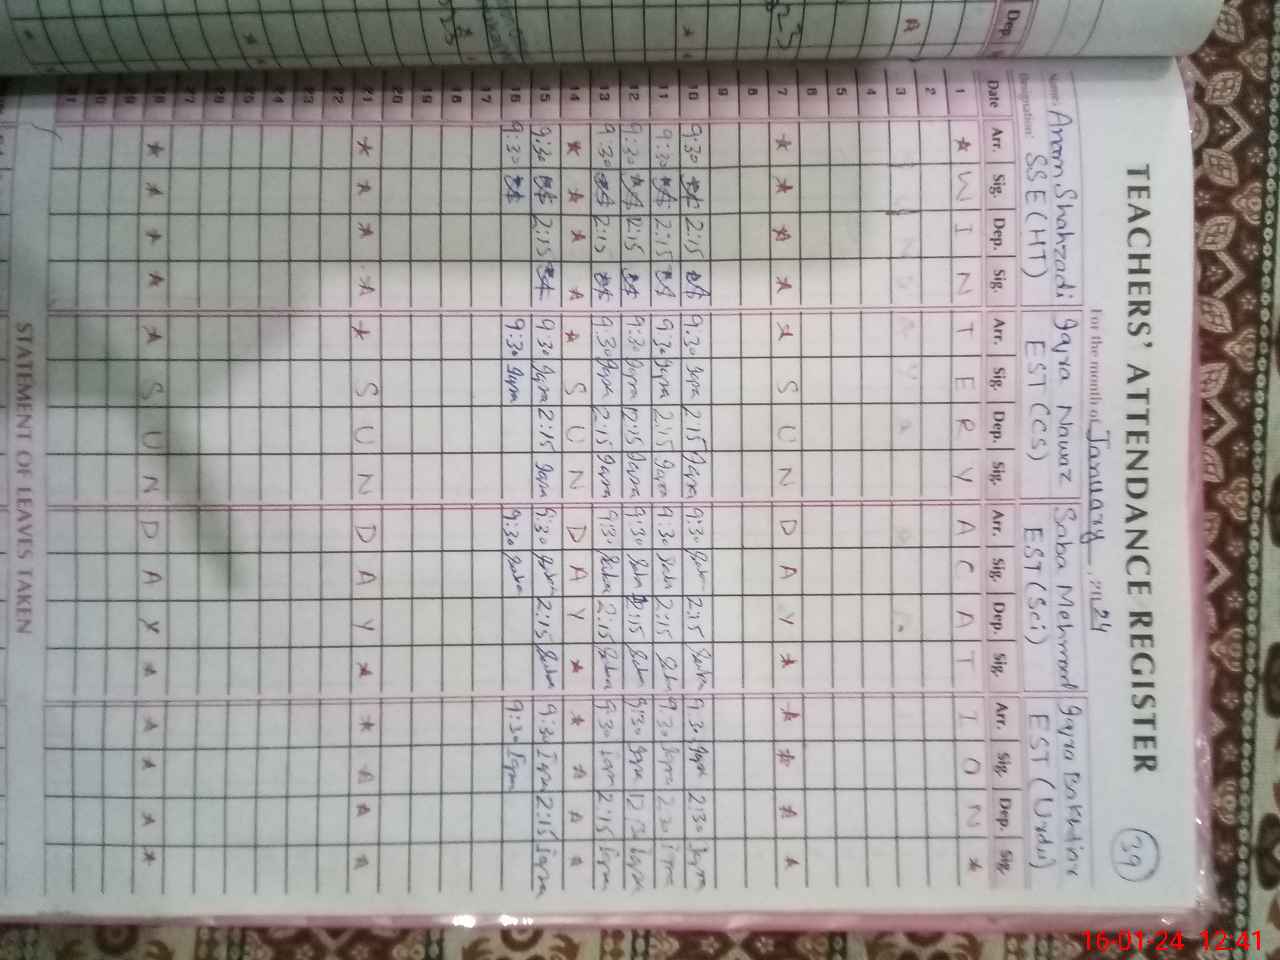 TEACHERS' ATTENDANCE REGISTER
39
For the month of January 2024
Name: Anam Shahzadi Iqra Nawaz Saba Mehmood Iqra
Designation: SSE (HT) EST (CS) EST (Sci) EST (Urdu)
Date Arr. Sig. Dep. Sig. Arr. Sig. Dep. Sig. Arr. Sig. Dep. Sig. Arr. Sig. Dep. Sig.
1 * W I N T E R Y A C A T I O N *
2
3
4
5
6
7 * * * * * S U N D A Y * * * * *
8
9
10 9:30 2:15 9:30 Iqra 2:15 Iqra 9:30 Saba 2:15 Saba 9:30 Iqra 2:30 Iqra
11 9:30 2:15 9:30 Iqra 2:15 Iqra 9:30 Saba 2:15 Saba 9:30 Iqra Iqra
12 9:30 12:15 9:30 Iqra 12:15 Iqra 9:30 Saba 12:15 Saba 9:30 Iqra Iqra
13 9:30 2:15 9:30 Iqra 2:15 Iqra 9:30 Saba 2:15 Saba 9:30 Iqra 2:15 Iqra
14 * * * * * S U N D A Y * * * * *
15 9:30 2:15 9:30 Iqra 2:15 Iqra 9:30 Saba 2:15 Saba 9:30 Iqra 2:15 Iqra
16 9:30 9:30 Iqra 9:30 Saba 9:30 Iqra
17
18
19
20
21 * * * * * S U N D A Y * * * * *
22
23
24
25
26
27
28 * * * * * S U N D A Y * * * * *
29
30
31
STATEMENT OF LEAVES TAKEN
Dep.
23
16-01-24 12:41